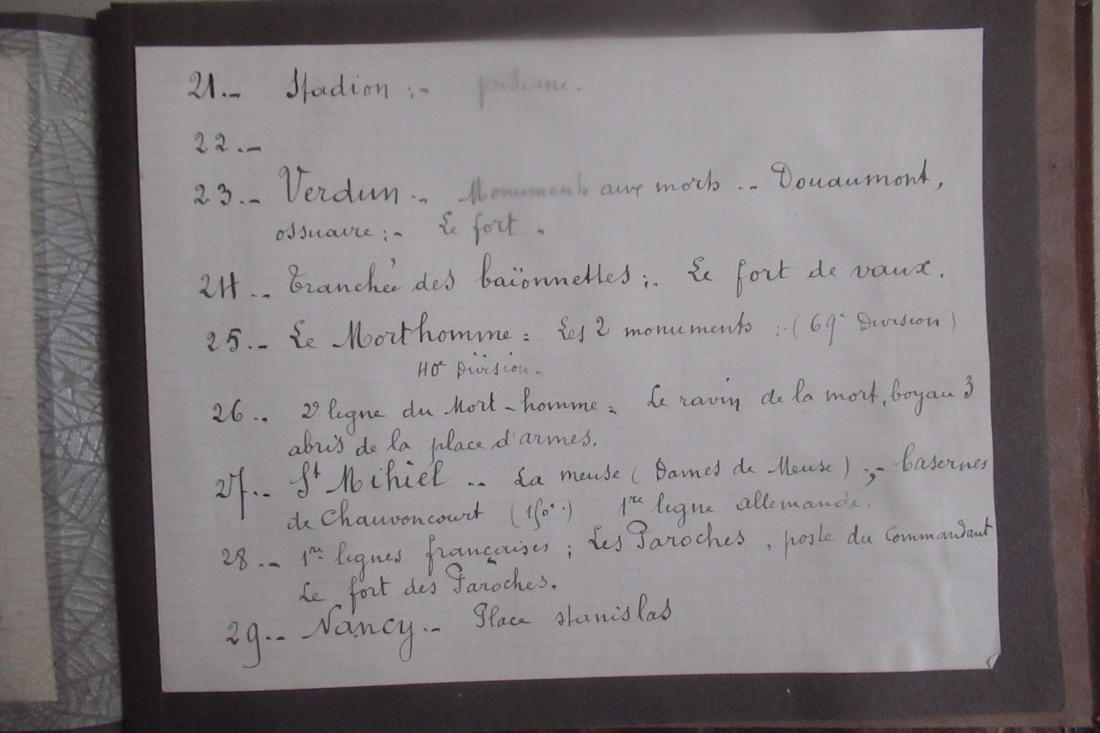 21.- Stadion :- piscine.
22.-
23.- Verdun.- Monuments aux morts .. Douaumont,
ossuaire :- Le fort.
24.. Tranchée des baïonnettes ;. Le fort de vaux.
25.- Le Morthomme = Les 2 monuments :. (69e Division)
40e Division.
26.. 2e ligne du Mort-homme = Le ravin de la mort, boyau 3
abris de la place d'armes.
27.. St Mihiel .. La meuse (Dames de Meuse) ;- Casernes
de Chauvoncourt (150e.) 1re ligne allemande.
28.. 1res lignes françaises ; Les Paroches, poste du Commandant
Le fort des Paroches.
29.. Nancy.. Place stanislas